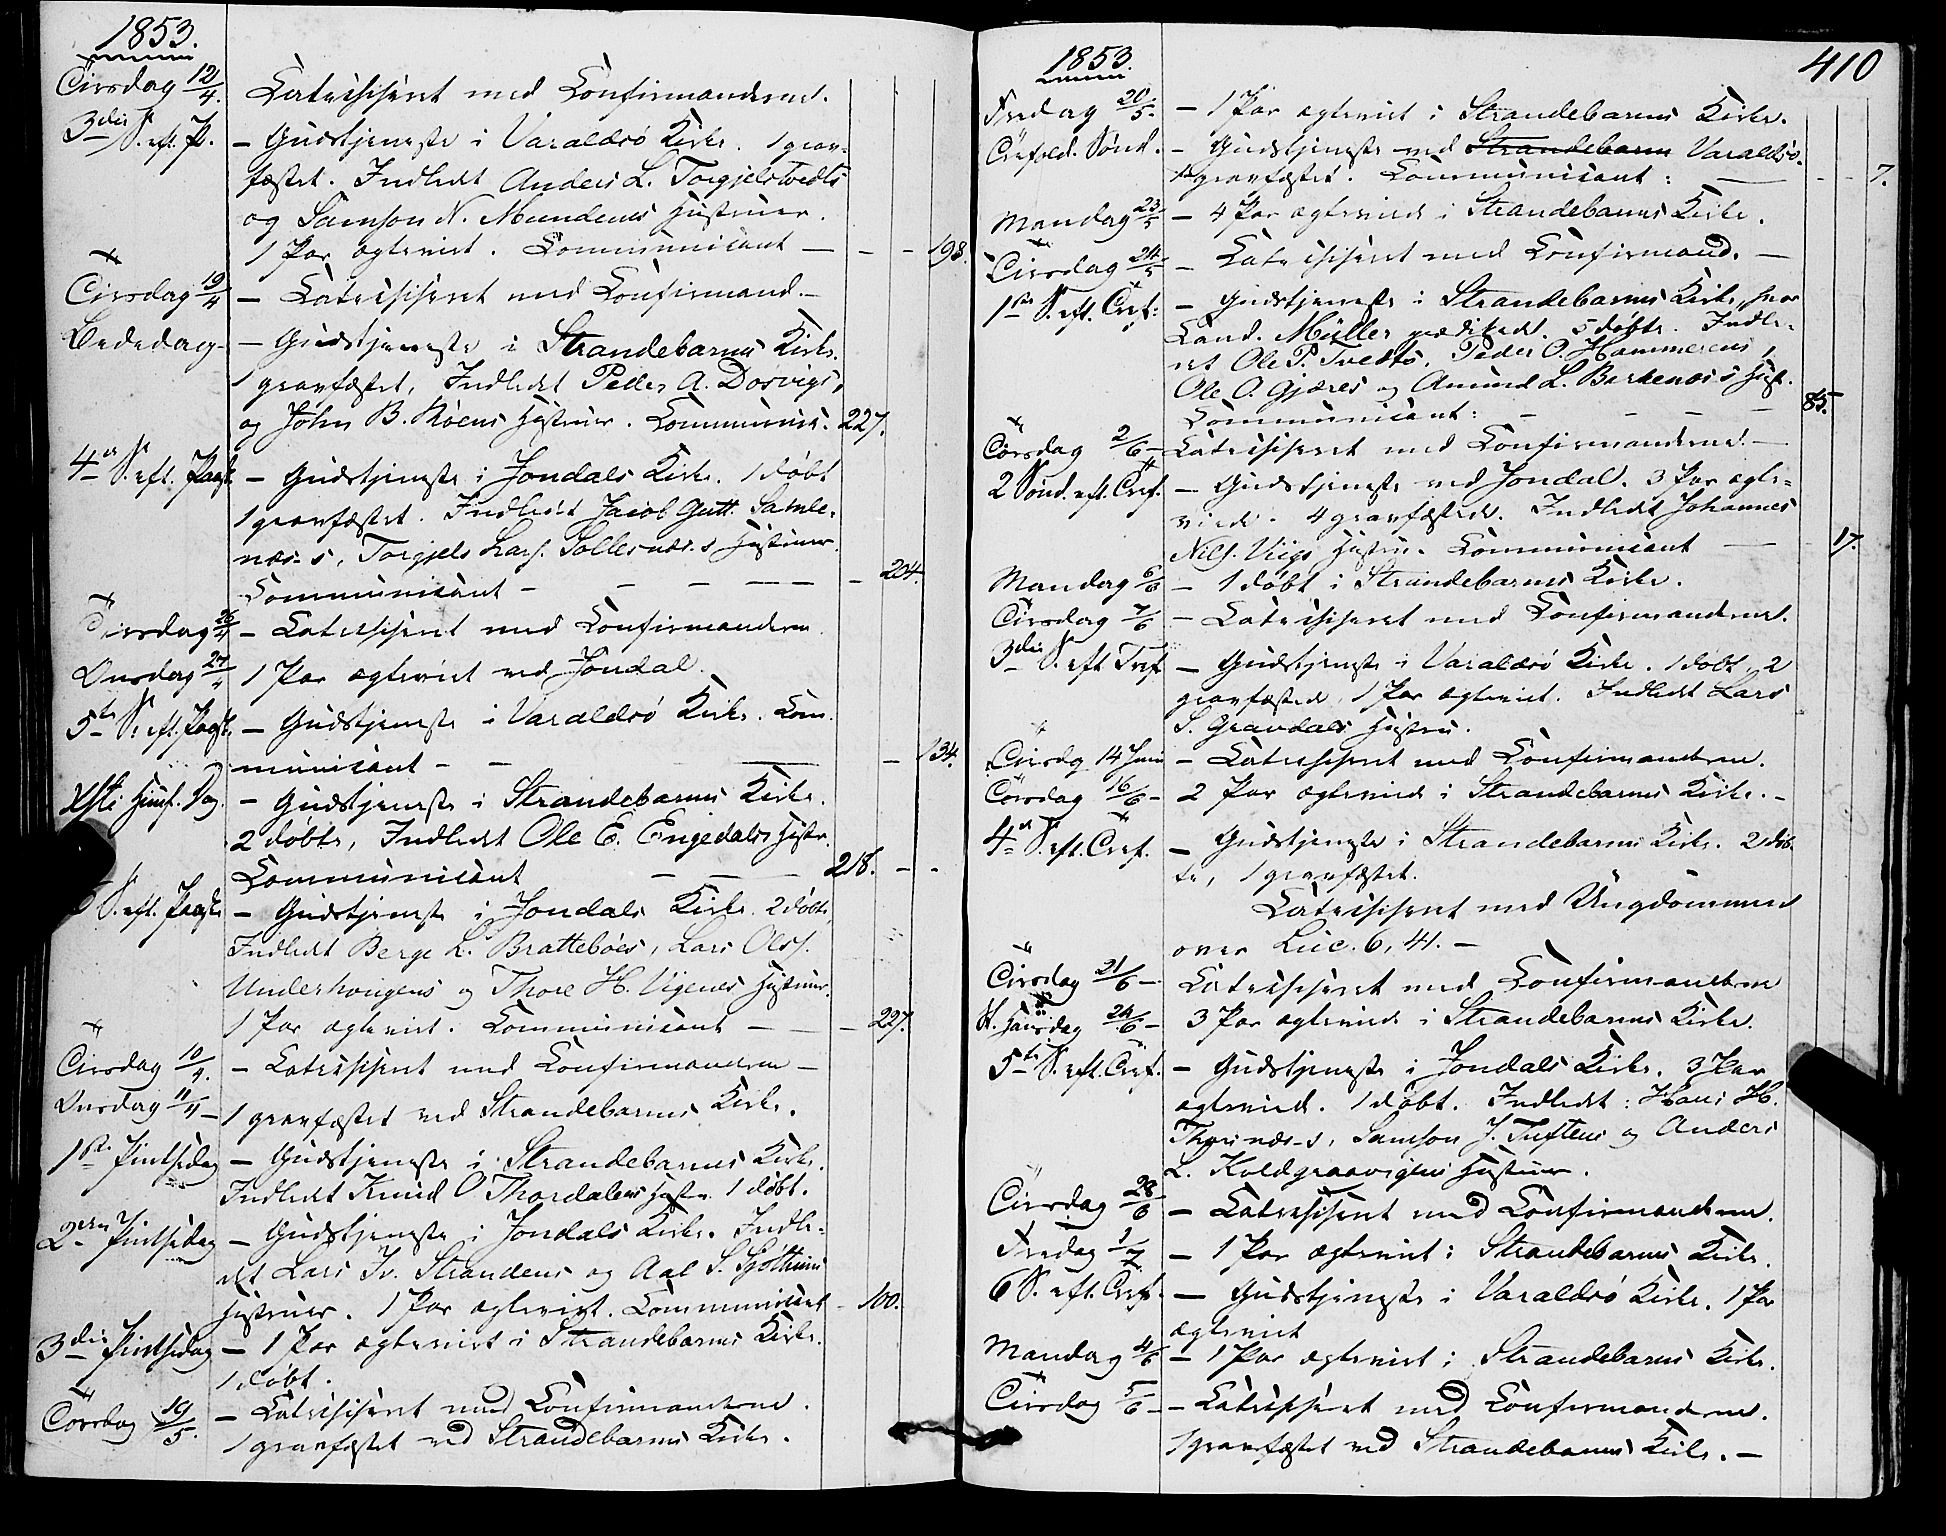 1853.
Tirsdag 12/4. Catechiseret med Confirmanderne.
3die S. eft. P. - Gudstjeneste i Varaldsø Kirke. 1 grav-
fæstet. Indledt Anders L. Torgjelstvedts
og Samson N. Mundenes Hustruer.
1 Par ægteviet. Communicant — - - 198.
Tirsdag 19/4 - Catechiseret med Confirmand.-
Bededag - Gudstjeneste i Strandebarms Kirke.
1 gravfæstet, Indledt Peder A. Dosvigs,
og John B. Moens Hustruer. Communic. 227.
4de S. eft. Paaske - Gudstjeneste i Jondals Kirke. 1 døbt
1 gravfæstet. Indledt Jacob Gutt. Samle-
næs-s, Torgjels Lars. Sollesnæs-s Hustruer.
Communicant - — — — - 204.
Tirsdag 26/4 - Catechiseret med Confirmanderne.
Onsdag 27/4 1 Par ægteviet ved Jondal.
5te S. eft. Paaske. - Gudstjeneste i Varaldsø Kirke. Com-
municant - - — - 134.
Xsti Himf. Dag. - Gudstjeneste i Strandebarms Kirke.
2 døbte, Indledt Ole E. Engedals Hustr.
Communicant — — — 218. - -
6 S. eft. Paaske - Gudstjeneste i Jondals Kirke. 2 døbte,
Indledt Berge L. Brattebøes, Lars Ols.
Underhougens og Thore H. Vigenes Hustruer.
1 Par ægteviet. Communicant - - - 227.
Tirsdag 10/4. - Catechiseret med Confirmanderne -
Onsdag 11/4 - 1 gravfæstet ved Strandebarms Kirke.
1ste Pintsedag - Gudstjeneste i Strandebarms Kirke.
Indledt Knud O Thordalens Hustr. 1 døbt.
2den Pintsedag - Gudstjeneste i Jondals Kirke. Indle-
det Lars Iv. Strandens og Aal S. Sjøthuns
Hustruer. 1 Par ægteviet. Communicant - 100.
3die Pintsedag - 1 Par ægteviet i Strandebarms Kirke.
1 døbt.
Torsdag 19/5. - Catechiseret med Confirmanderne.
1 gravfæstet ved Strandebarms Kirke.
410
1853.
Fredag 20/5. - 1 Par ægteviet i Strandebarms Kirke.
Trefold. Sønd. - Gudstjeneste ved Strandebarm Varaldsø.
1 gravfæstet. Communicant: — - - 7.
Mandag 23/5 - 4 Par ægteviede i Strandebarms Kirke.
Tirsdag 24/5 - Catechiseret med Confirmand. —
1ste S. eft. Tref: - Gudstjeneste i Strandebarms Kirke, hvor
Cand. Müller prædikede. 5 døbte. Indle-
det Ole P. Tvedts, Peder O. Hammerens,
Ole O. Gjæres og Amund L. Berkenæs's Hust.
Communicant: - - - - 85.
Torsdag 2/6 - Catechiseret med Confirmanderne. —
2 Sønd. eft. Tref. - Gudstjeneste ved Jondal. 3 Par ægte-
viede. 4 gravfæstede. Indledt Johannes
Nils. Viigs Hustru. Communicant — - 17.
Mandag 6/6 - 1 døbt i Strandebarms Kirke.
Tirsdag 7/6 - Catechiseret med Confirmanderne.
3die S. eft Tref. - Gudstjeneste i Varaldsø Kirke. 1 døbt, 2
gravfæstede, 1 Par ægteviet. Indledt Lars
S. Gravdals Hustru.
Tirsdg 14 Juni - Catechiseret med Confirmanderne.
Torsdag 16/6 - 2 Par ægteviede i Strandebarms Kirke. -
4de S. eft. Tref. - Gudstjeneste i Strandebarms Kirke. 2 døb-
te, 1 gravfæstet.
Catechiseret med Ungdommen
over Luc. 6, 41. -
Tirsdag 21/6 - Catechiseret med Confirmanderne
St. Hansdag 24/6 - 3 Par ægteviede i Strandebarms Kirke.
5te S. eft. Tref. - Gudstjeneste i Jondals Kirke. 3 Par
ægteviede. 1 døbt. Indledt: Hans H.
Thorsnæs-s, Samson J. Tuftens og Anders
L. Koldgraavigens Hustruer.
Tirsdag 28/6 - Catechiseret med Confirmanderne.
Fredag 1/7 - 1 Par ægteviet i Strandebarms Kirke.
6 S. eft. Tref. - Gudstjeneste i Varaldsø Kirke. 1 Par
ægteviet
Mandag 4/6 - 1 Par ægteviet i Strandebarms Kirke.
Tirsdag 5/6 - - Catechiseret med Confirmanderne.
1 gravfæstet ved Strandebarms Kirke. -